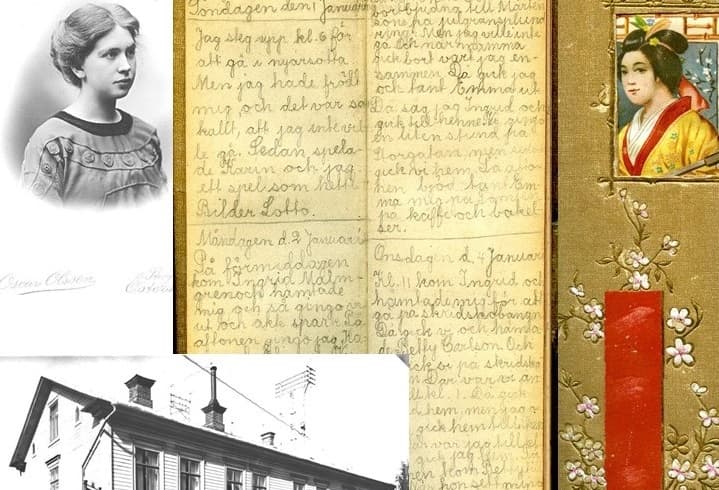 Söndagen den 1 Januari
Jag steg upp kl. 6 för
att gå i nyarsotta
Men jag hade
mig, och det var så
kallt, att jag inte vil
le gå. Sedan spela
de Karin och jag
ett spel som hette
Bilder Lotto.
Måndagen d. 2 Januari
På förmiddagen
kom Ingrid Malm-
gren och hämtade
mig och så gingo
ut och åkte spark. På
aftonen gingo jag, Ka
bortbjudna till Mårten
sons på julgransplund
ring. Men jag ville inte
gå. Och när mamma
gick bort vart jag en-
sammen. Då gick jag
och tant Emma ut
Då såg jag Ingrid och
gick till henne. Vi gingo
en liten stund på
Norgatan, men se
gick vi hem. På
bjöd tant Em-
ma mig på
på kaffe och bakel
ser.
Onsdagen d. 4 Januari
Kl. 11 kom Ingrid och
hämtade mig för att
gå på skridskobangn
Då gick vi och hämta
de Betty Carlson. Och
gick vi på skridsk
Där var vi än
till kl. 1. Då gick
hem, men jag
gick hem till
var jag till
gick jag hem.
kom Bet
Oscar Olsson